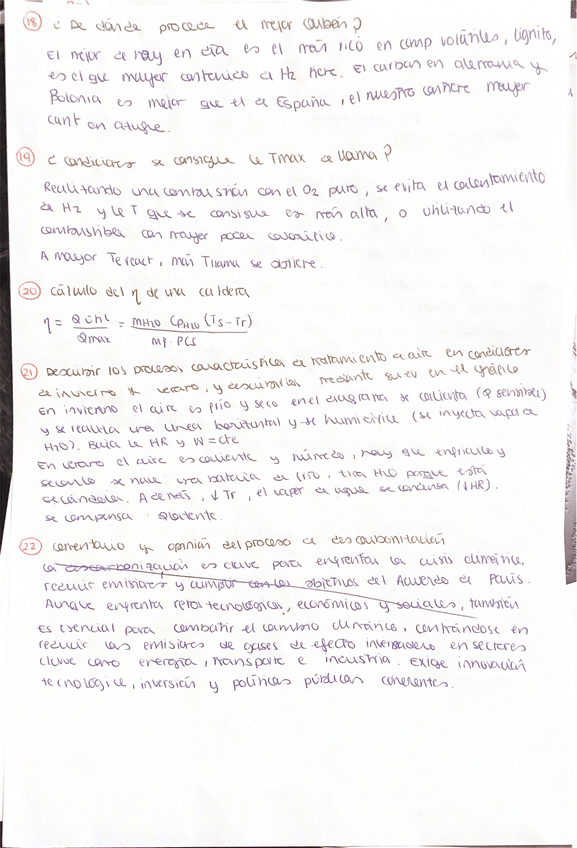 18 ¿De dónde procede el mejor carbón?
El mejor de hoy en día es el más rico en comp volátiles, lignito,
es el que mayor contenido de H2 tiene. El carbón en alemania y
Polonia es mejor que el de España, el nuestro contiene mayor
cant en azufre.
19 ¿condiciones se consigue la Tmax de llama?
Realizando una combustión con el O2 puro, se evita el calentamiento
de H2 y la T que se consigue es más alta, o utilizando el
combustible con mayor poder calorífico.
A mayor T react, más Tllama se obtiene.
20 Cálculo del η de una caldera
η = Q útil / Qmax = mH2O CpH2O (Ts-Tr) / mf · PCS
21 Describir los procesos característica de tratamiento de aire en condiciones
de invierno y verano, y describirlos mediante su ev en el gráfico
En invierno el aire es frío y seco en el diagrama se calienta (Q sensible)
y se realiza una línea horizontal y se humidifica (se inyecta vapor de
H2O). Baja la HR y W = cte
En verano el aire es caliente y húmedo, hay que enfriarlo y
secarlo se hace una batería de frío, tira H2O porque está
secándola. Además, ↓Tr, el vapor de agua se condensa (↓HR).
se compensa Qlatente.
22 comentario y opinión del proceso de descarbonización
La descarbonización es clave para enfrentar la crisis climática,
reducir emisiones y cumplir con los objetivos del Acuerdo de París.
Aunque enfrenta retos tecnológicos, económicos y sociales, también
es esencial para combatir el cambio climático, centrándose en
reducir las emisiones de gases de efecto invernadero en sectores
clave como energía, transporte e industria. Exige innovación
tecnológica, inversión y políticas públicas coherentes.